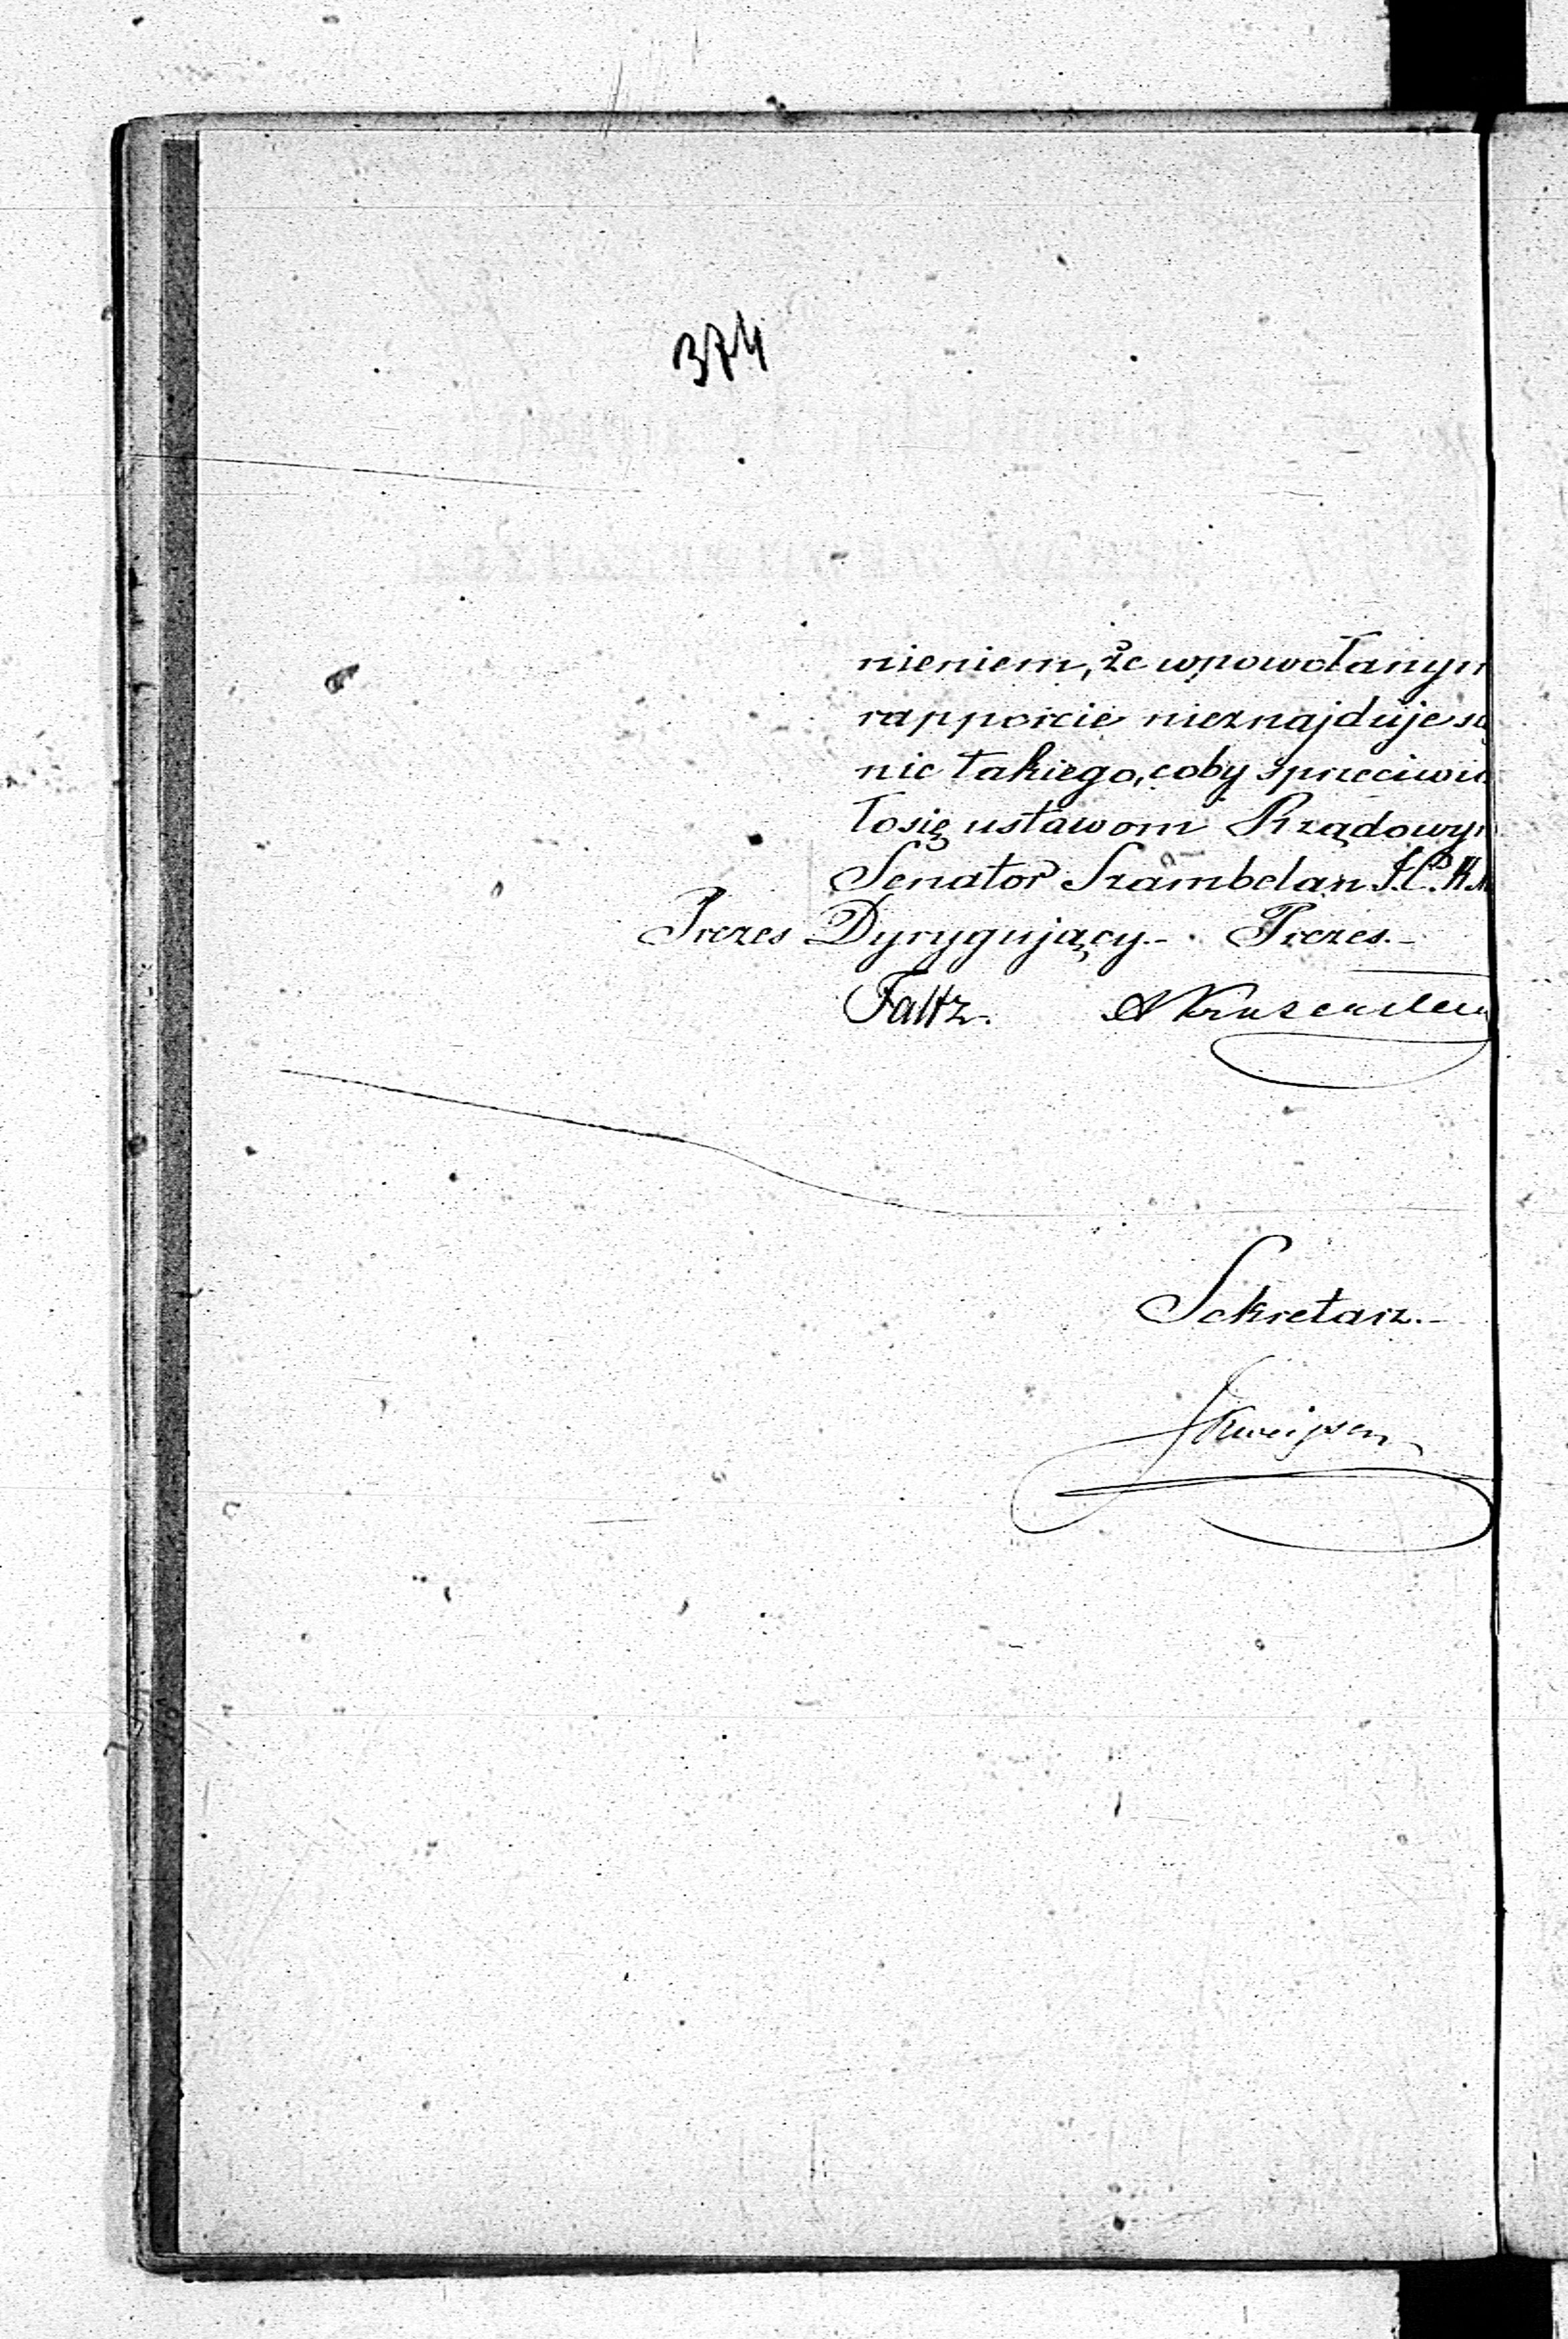 374
nieniem, że wpowołanym
rapporcie nieznajduje się
nic takiego, coby sprzeciwia
łosię ustawom Rządowym
Senator Szambelan J.C.K.M
Prezes Dyrygujący.- Prezes.-
Faltz. A Krusenstern
Sekretarz.-